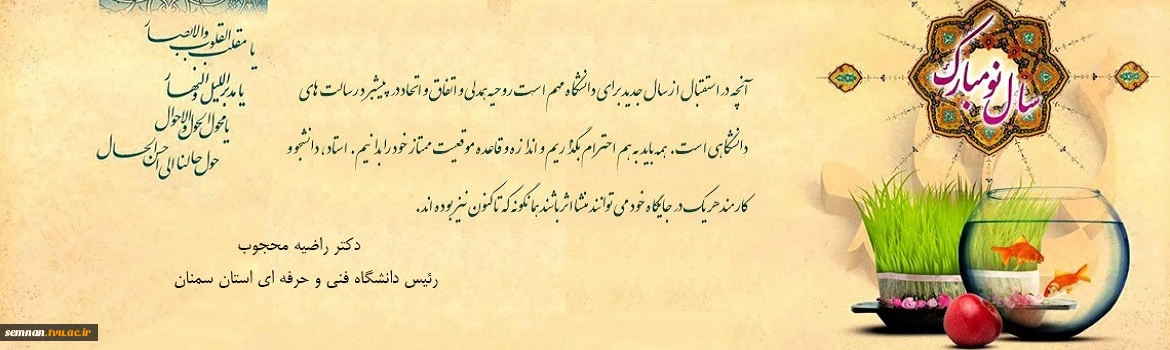 سال نو مبارک
یا مقلب القلوب والابصار
یا مدبر اللیل و النهار
یا محول الحول والاحوال
حول حالنا الی احسن الحال
آنچه در استقبال از سال جدید برای دانشگاه مهم است روحیه همدلی و اتفاق و اتحاد در پیشبرد رسالت های
دانشگاهی است. همه باید به هم احترام بگذاریم و اندازه و قاعده موقعیت ممتاز خود را بدانیم. استاد، دانشجو و
کارمند هر یک در جایگاه خود می توانند منشا اثر باشند همانگونه که تاکنون نیز بوده اند.
دکتر راضیه محجوب
رئیس دانشگاه فنی و حرفه ای استان سمنان
semnan.tvu.ac.ir